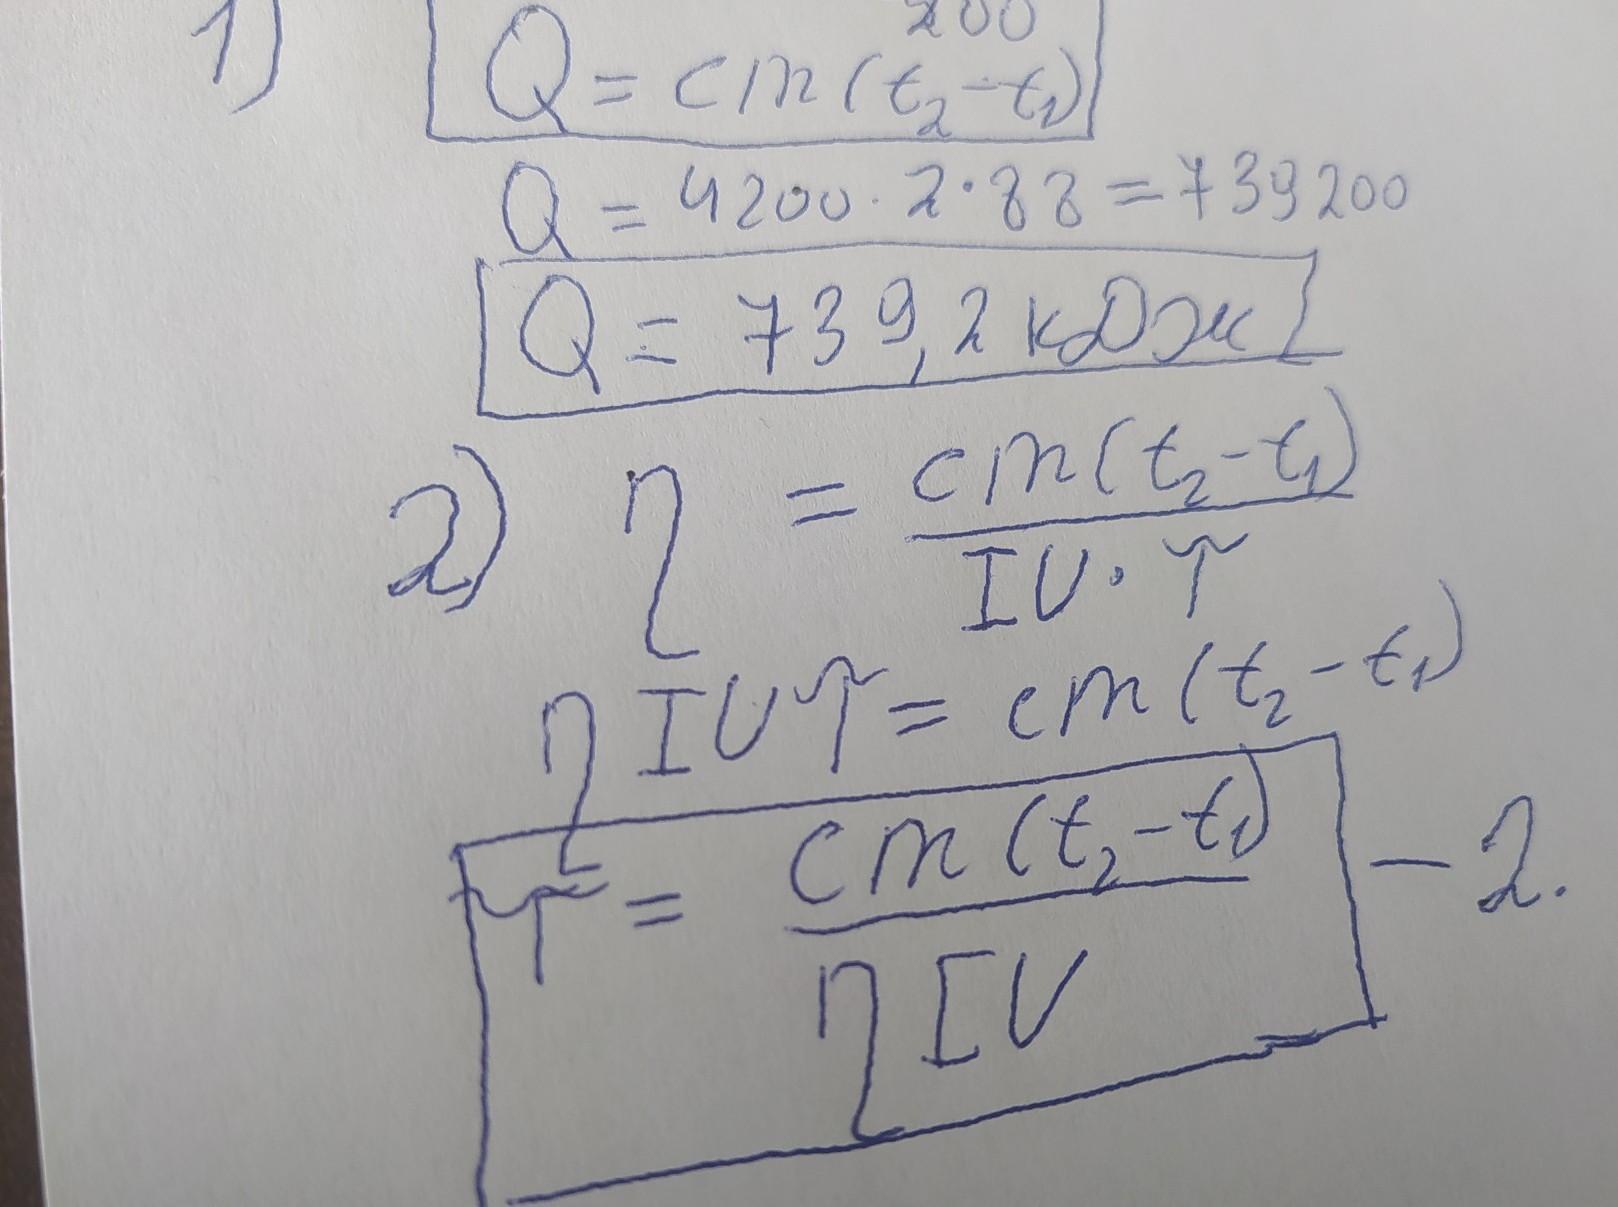 200
1) Q = cm(t₂-t₁)
Q = 4200 · 2 · 88 = 739200
Q = 739,2 кДж
2) η = cm(t₂-t₁) / IU·τ
ηIUτ = cm(t₂-t₁)
τ = cm(t₂-t₁) / ηIU - 2.